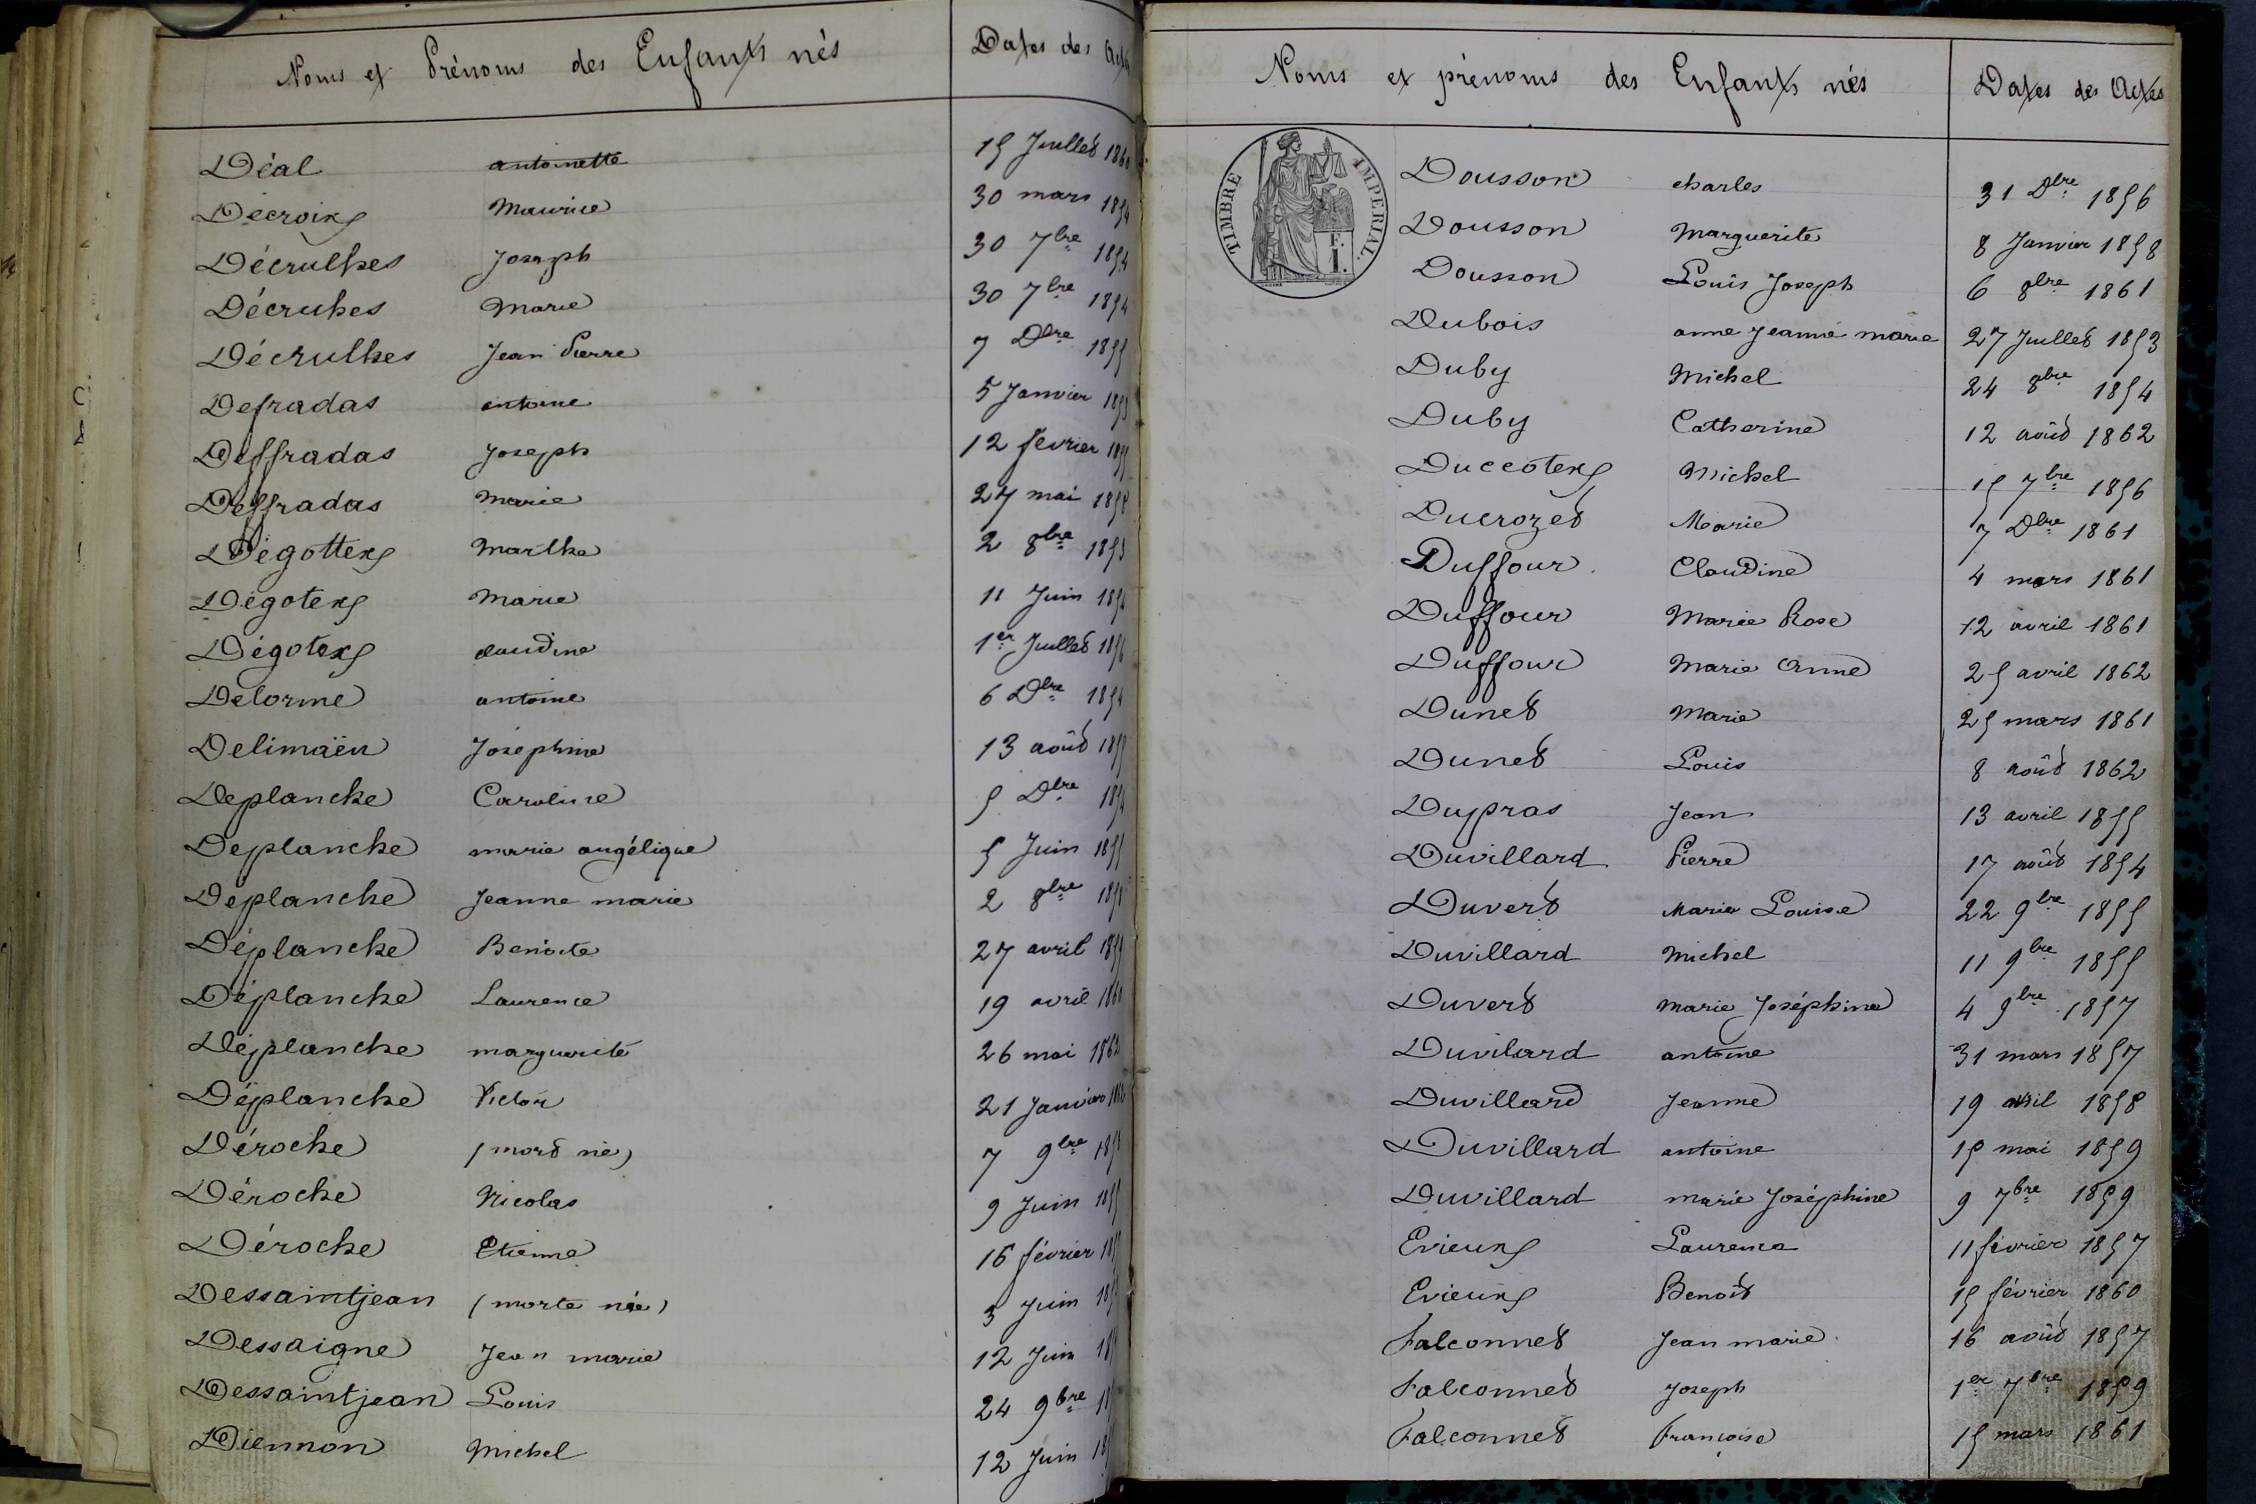 Noms et Prénoms des Enfants nés Dates des Actes
Déal antoinette 15 Juillet 1860
Décroix Maurice 30 mars 1854
Décrulhes Joseph 30 7bre 1854
Décruhes Marie 30 7bre 1854
Décrulhes Jean Pierre 7 Dbre 1855
Defradas antoine 5 Janvier 1853
Deffradas Joseph 12 février 1855
Deffradas Marie 27 mai 1858
Dégottex Marthe 2 8bre 1853
Dégotex Marie 11 Juin 1854
Dégotex claudine 1er Juillet 1856
Delorme antoine 6 Dbre 1854
Delimaën Joséphine 13 août
Deplanche Caroline 5 Dbre 1854
Deplanche marie angélique 5 Juin 1855
Deplanche Jeanne marie 2 8bre
Déplanche Benoite 27 avril 1859
Déplanche Laurence 19 avril 1860
Déplanche marguerite 26 mai 1862
Déplanche Victor 21 Janvier
Déroche (mort né) 7 9bre
Déroche Nicolas 9 Juin 1855
Déroche Etienne 16 février
Dessaintjean (morte née) 3 Juin
Dessaigne Jean marie 12 Juin
Dessaintjean Louis 24 9bre
Diennon Michel 12 Juin
Noms et prénoms des Enfants nés Dates des Actes
TIMBRE IMPERIAL.
E. I.
Dousson charles 31 Dbre 1856
Dousson Marguerite 8 Janvier 1858
Dousson Louis Joseph 6 8bre 1861
Dubois anne Jeanne marie 27 Juillet 1853
Duby Michel 24 8bre 1854
Duby Catherine 12 août 1862
Duccotex Michel 15 7bre 1856
Ducrozet Marie 7 Dbre 1861
Duffour Claudine 4 mars 1861
Duffour Marie Rose 12 avril 1861
Duffour Marie Anne 25 avril 1862
Dunet Marie 25 mars 1861
Dunet Louis 8 août 1862
Dupras Jean 13 avril 1855
Duvillard Pierre 17 août 1854
Duvert Marie Louise 22 9bre 1855
Duvillard Michel 11 9bre 1855
Duvert Marie Joséphine 4 9bre 1857
Duvilard antoine 31 mars 1857
Duvillard Jeanne 19 avril 1858
Duvillard antoine 15 mai 1859
Duvillard marie Joséphine 9 7bre 1859
Evieux Laurence 11 février 1857
Evieux Benoit 15 février 1860
Falconnet Jean marie 16 août 1857
Falconnet Joseph 1er 7bre 1859
Falconnet françoise 15 mars 1861